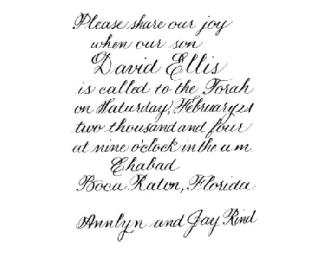 Please share our joy
when our son
David Ellis
is called to the Torah
on Saturday, February 21
two thousand and four
at nine o'clock in the a m
Chabad
Boca Raton, Florida
Annlyn and Jay Rind